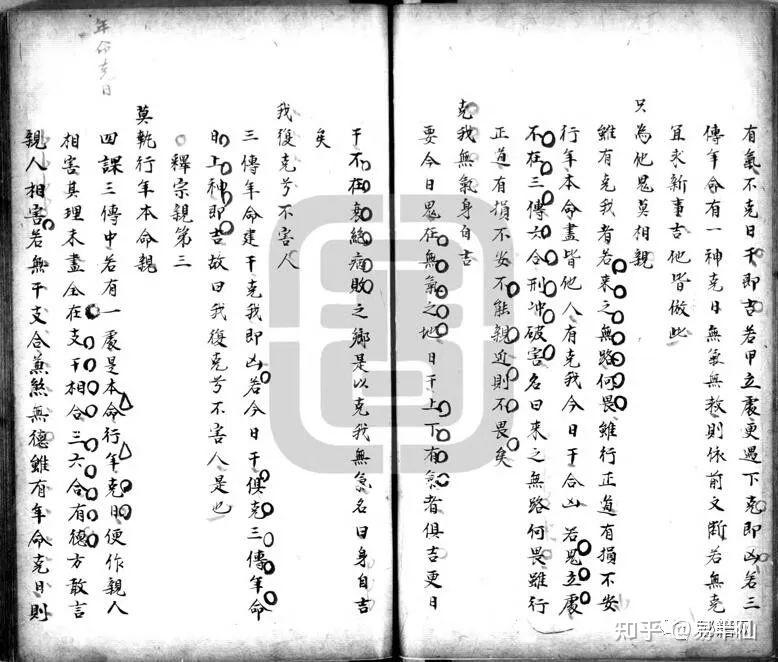 有氣不克日干即吉若甲立處更遇下克即凶若三
傳年命有一神克日無氣無救則依前文斷若無克
宜求新事吉他皆倣此
只為他鬼莫相親
雖有克我者若來之無路何畏雖行正道有損不安
行年本命盡皆他人有克我今日干合凶若鬼立處
不在三傳六合刑冲破害名曰來之無路何畏雖行
正道有損不安不能親近則不畏矣
克我無氣身自吉
要今日鬼在無氣之地日干上下有氣者俱吉更日
干不在衰絕病敗之鄉是以克我無氣名曰身自吉
矣
我復克兮不害人
三傳年命建干克我即凶若今日干俱克三傳年命
日上神即吉故曰我復克兮不害人是也
釋宗親第三
莫執行年本命親
四課三傳中若有一處是本命行年克日便作親人
相害其理未盡全在支干相合三六合有德方敢言
親人相害若無干支合兼煞無德雖有年命克日則
年命克日
知乎 @易籍网